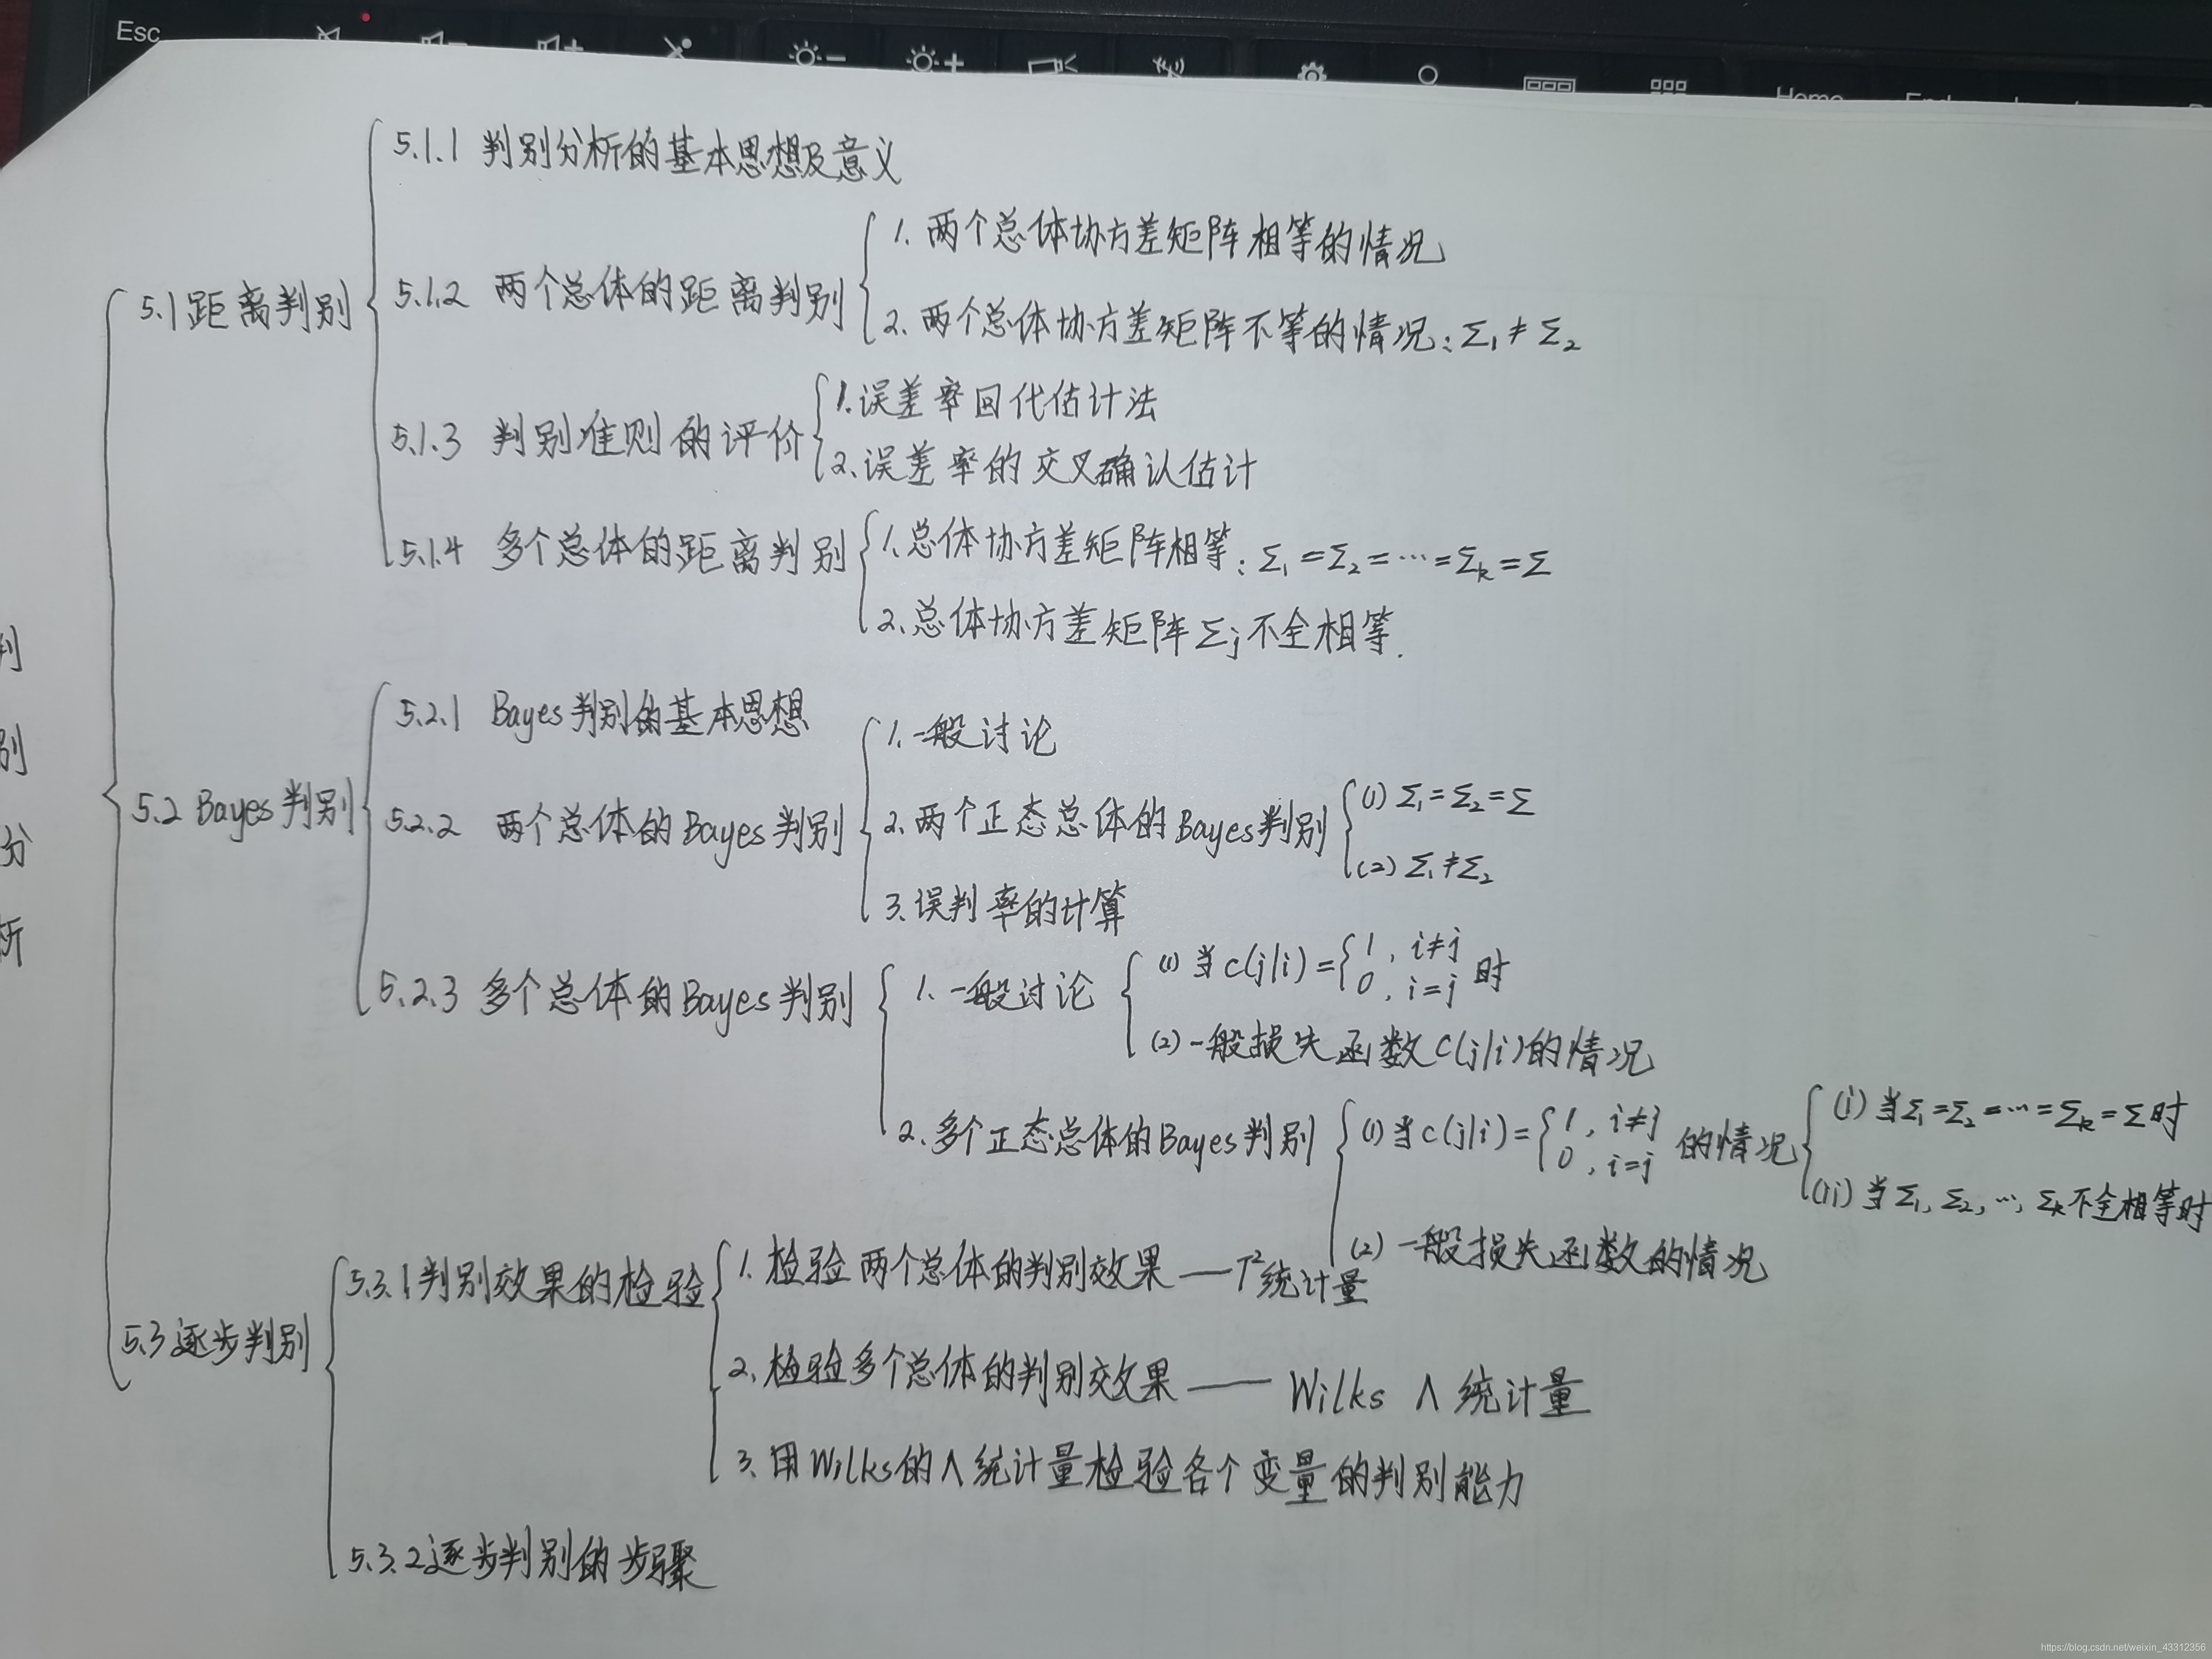 Esc
Home
End
判
别
分
析
5.1 距离判别
5.1.1 判别分析的基本思想及意义
5.1.2 两个总体的距离判别
1. 两个总体协方差矩阵相等的情况
2. 两个总体协方差矩阵不等的情况：Σ₁ ≠ Σ₂
5.1.3 判别准则的评价
1. 误差率回代估计法
2. 误差率的交叉确认估计
5.1.4 多个总体的距离判别
1. 总体协方差矩阵相等：Σ₁ = Σ₂ = ⋯ = Σₖ = Σ
2. 总体协方差矩阵 Σⱼ 不全相等.
5.2 Bayes判别
5.2.1 Bayes判别的基本思想
5.2.2 两个总体的Bayes判别
1. 一般讨论
2. 两个正态总体的Bayes判别
(1) Σ₁ = Σ₂ = Σ
(2) Σ₁ ≠ Σ₂
3. 误判率的计算
5.2.3 多个总体的Bayes判别
1. 一般讨论
(1) 当 c(j|i) = { 1, i≠j
0, i=j 时
(2) 一般损失函数 C(j|i) 的情况
2. 多个正态总体的Bayes判别
(1) 当 c(j|i) = { 1, i≠j
0, i=j 的情况
(i) 当 Σ₁ = Σ₂ = ⋯ = Σₖ = Σ 时
(ii) 当 Σ₁, Σ₂, ⋯, Σₖ 不全相等时
(2) 一般损失函数的情况
5.3 逐步判别
5.3.1 判别效果的检验
1. 检验两个总体的判别效果 —— T²统计量
2. 检验多个总体的判别效果 —— Wilks Λ 统计量
3. 用Wilks的Λ统计量检验各个变量的判别能力
5.3.2 逐步判别的步骤
https://blog.csdn.net/weixin_43312356